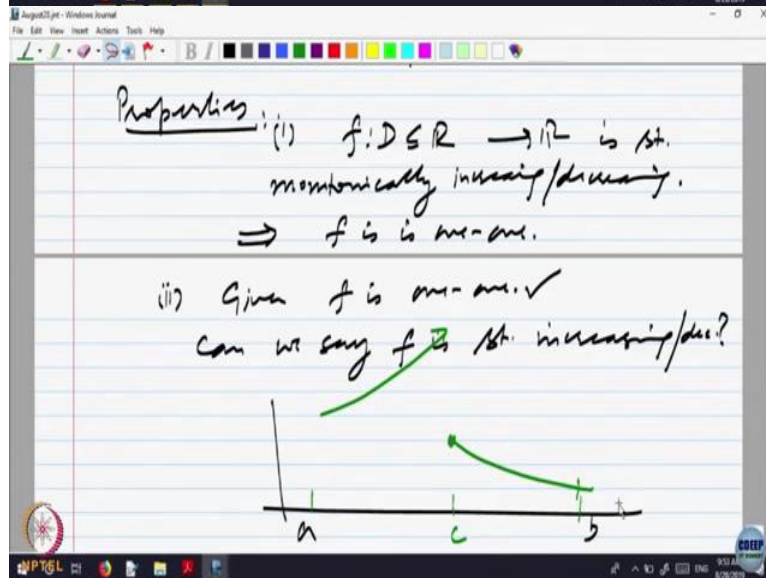 August28.jnt - Windows Journal
File Edit View Insert Actions Tools Help
Properties: (i) f: D ⊆ ℝ → ℝ is st.
monotonically increasing/decreasing.
⇒ f is is one-one.
(ii) Given f is one-one. ✓
Can we say f is st. increasing/dec.?
a c b
NPTEL
CDEEP
IIT BOMBAY
ENG
9:53 AM
8/28/2019